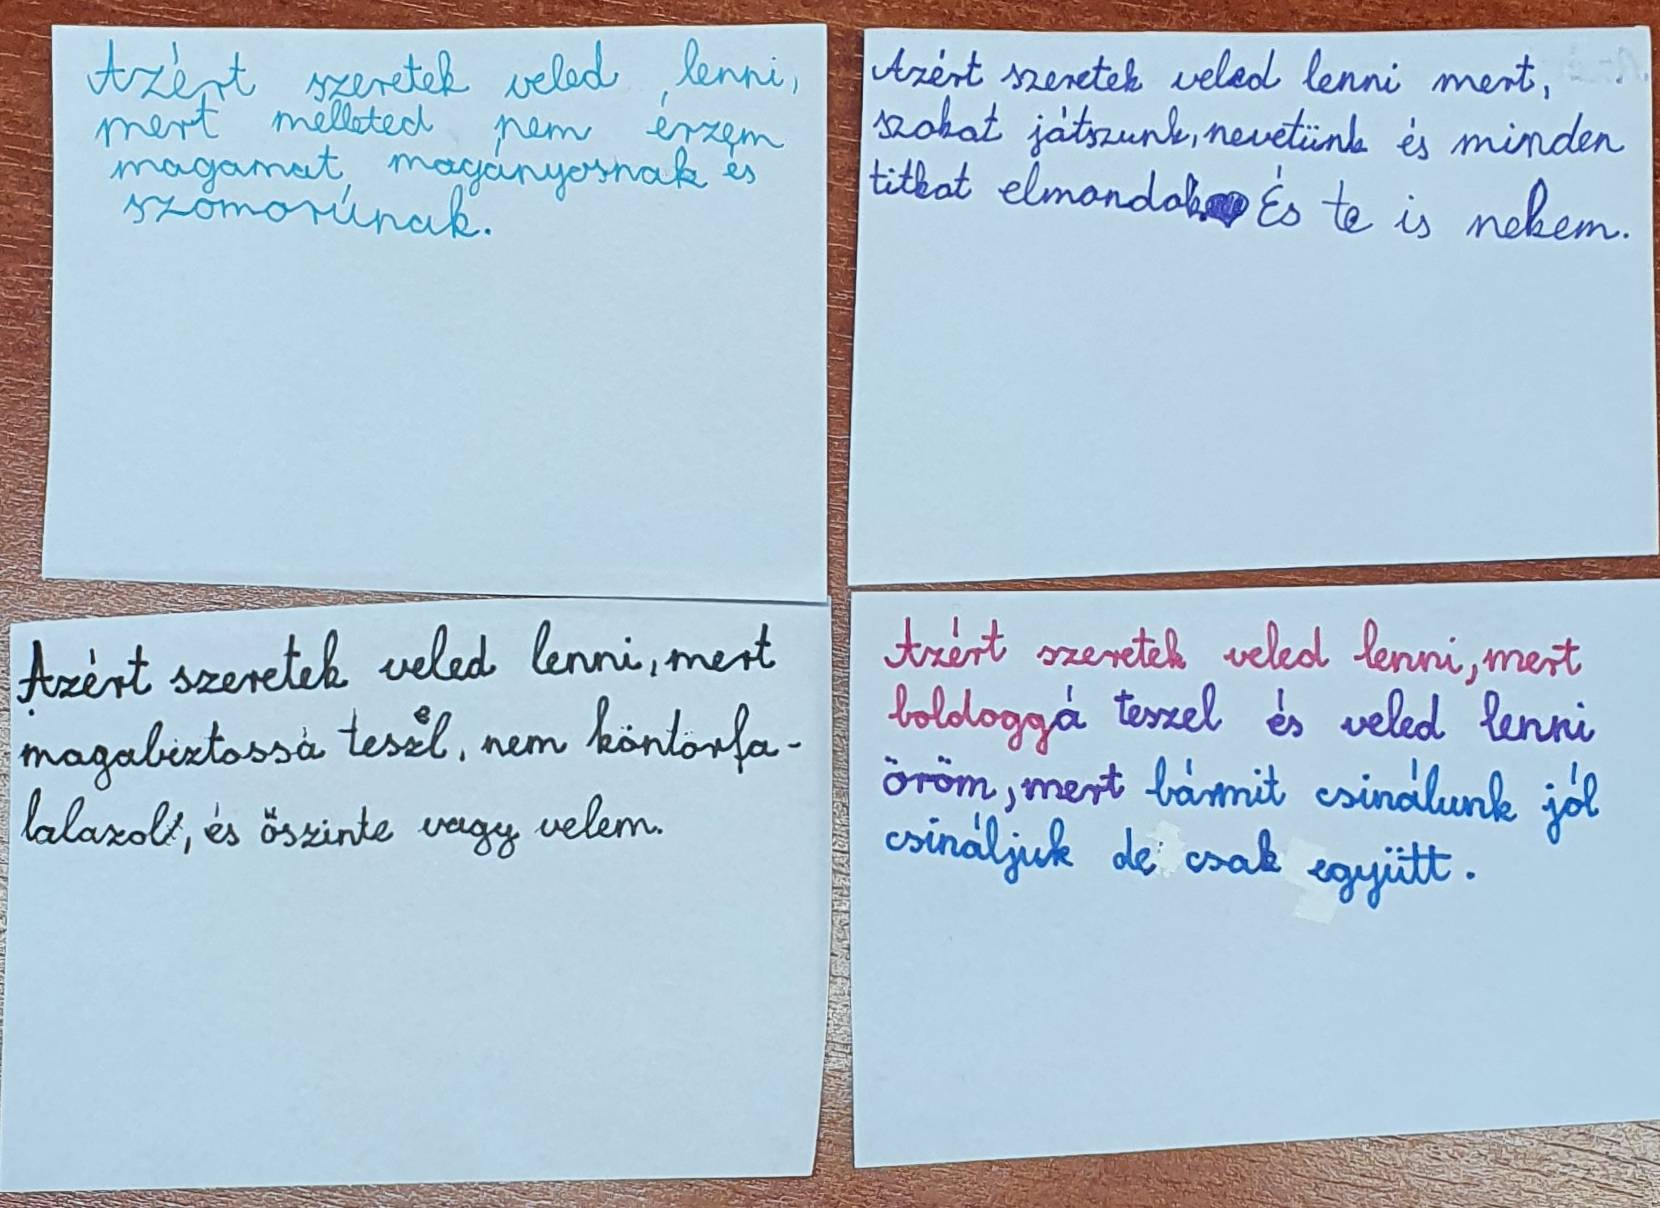 Azért szeretek veled lenni,
mert melleted nem érzem
magamat magányosnak és
szomorúnak.
Azért szeretek veled lenni mert,
szokat játszunk, nevetünk és minden
titkat elmondok És te is nekem.
Azért szeretek veled lenni, mert
magabiztossá teszel, nem köntörfa-
lalazol, és őszinte vagy velem.
Azért szeretek veled lenni, mert
boldoggá teszel és veled lenni
öröm, mert bármit csinálunk jól
csináljuk de csak együtt.